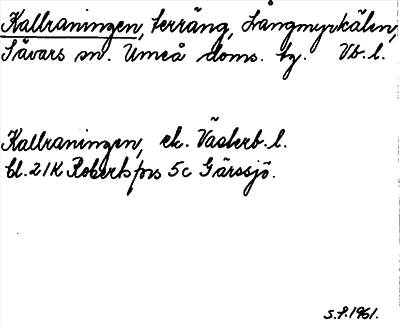 Kallraningen, terräng, Långmyrkälen,
Sävars sn. Umeå doms. tg. Vb. l.
Kallraningen, ek. Västerb. l.
bl. 21K Robertsfors 5c Gärssjö.
S.P. 1961.